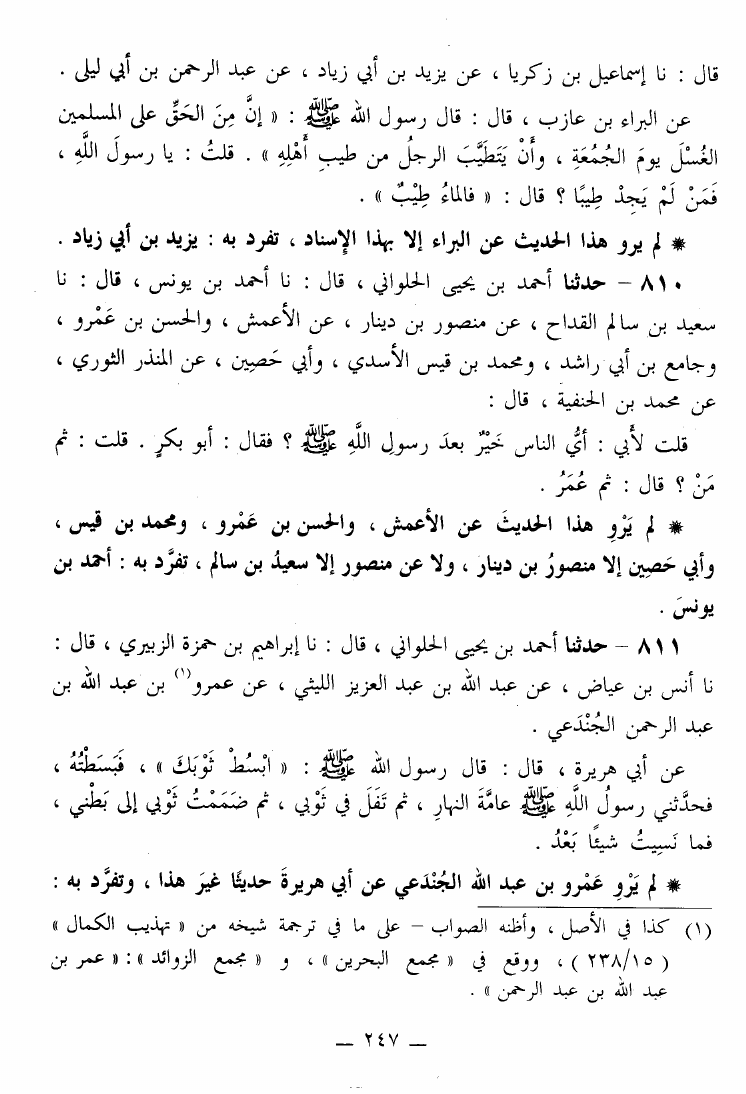 قال : نا إسماعيل بن زكريا ، عن يزيد بن أبي زياد ، عن عبد الرحمن بن أبي ليلى .
عن البراء بن عازب ، قال : قال رسول الله ﷺ : « إنَّ مِنَ الحَقِّ على المسلمين
الغُسْلَ يومَ الجُمُعَةِ ، وأَنْ يَتَطَيَّبَ الرجلُ من طيبِ أَهْلِهِ » . قلتُ : يا رسولَ اللَّهِ ،
فَمَنْ لَمْ يَجِدْ طِيبًا ؟ قال : « فالماءُ طِيْبٌ » .
* لم يرو هذا الحديث عن البراء إلا بهذا الإسناد ، تفرد به : يزيد بن أبي زياد .
٨١٠ – حدثنا أحمد بن يحيى الحلواني ، قال : نا أحمد بن يونس ، قال : نا
سعيد بن سالم القداح ، عن منصور بن دينار ، عن الأعمش ، والحسن بن عَمْرو ،
وجامع بن أبي راشد ، ومحمد بن قيس الأسدي ، وأبي حَصِين ، عن المنذر الثوري ،
عن محمد بن الحنفية ، قال :
قلت لأَبي : أيُّ الناس خَيْرٌ بعدَ رسولِ اللَّهِ ﷺ ؟ فقال : أبو بكرٍ . قلت : ثم
مَنْ ؟ قال : ثم عُمَرُ .
* لم يَرْوِ هذا الحديثَ عن الأعمش ، والحسن بن عَمْرو ، ومحمد بن قيس ،
وأبي حَصِين إلا منصورُ بن دينار ، ولا عن منصور إلا سعيدُ بن سالم ، تفرَّد به : أحمد بن
يونسَ .
٨١١ – حدثنا أحمد بن يحيى الحلواني ، قال : نا إبراهيم بن حمزة الزبيري ، قال :
نا أنس بن عياض ، عن عبد الله بن عبد العزيز الليثي ، عن عمرو(١) بن عبد الله بن
عبد الرحمن الجُنْدَعي .
عن أبي هريرة ، قال : قال رسول الله ﷺ : « ابْسُطْ ثَوْبَكَ » ، فَبَسَطْتُهُ ،
فحدَّثني رسولُ اللَّهِ ﷺ عامَّةَ النهارِ ، ثم تَفَلَ في ثَوْبي ، ثم ضَمَمْتُ ثَوْبي إلى بَطْني ،
فما نَسِيتُ شيئًا بَعْدُ .
* لم يَرْوِ عَمْرو بن عبد الله الجُنْدَعي عن أبي هريرةَ حديثًا غيرَ هذا ، وتفرَّد به :
(١) كذا في الأصل ، وأظنه الصواب – على ما في ترجمة شيخه من « تهذيب الكمال »
( ٢٣٨/١٥ ) ، ووقع في « مجمع البحرين » ، و « مجمع الزوائد » : « عمر بن
عبد الله بن عبد الرحمن » .
— ٢٤٧ —